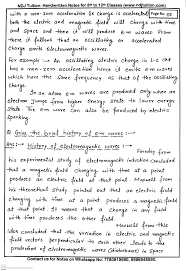 NDJ Tuition: Handwritten Notes for 8th to 12th Classes (www.ndjtuition.com)
with a non zero acceleration (ie charge is accelerated)
both the electric and magnetic field will change with time
and space and there it will produce em waves from
there it follows that an oscillating or accelerated
charge emits electromagnetic waves.
For example :- An oscillating electric charge is
has a non-zero acceleration hence it emits em waves
which have the same frequency as that of the oscillating
charge.
An em waves are produced only when an
electron jumps from higher energy state to lower energy
state. The em wave can also be produced by electric
sparking.
Q Give the brief history of em waves :-
Ans :- History of electromagnetic waves :- Faraday from
his experimental study of electromagnetic induction concluded
that a magnetic field changing with time at a point
produces an electric field at that point Maxwell from
his theoretical study pointed out that an electric field
changing with time at a point produces a magnetic field
at that point it means that a change in any field
with time produces the other field
Maxwell from this
idea concluded that the variation in electric and magnetic
field vectors perpendicular to each other leads to the
production of electromagnetic waves (disturbances) in space
Contact us for Notes on Whatsapp No: